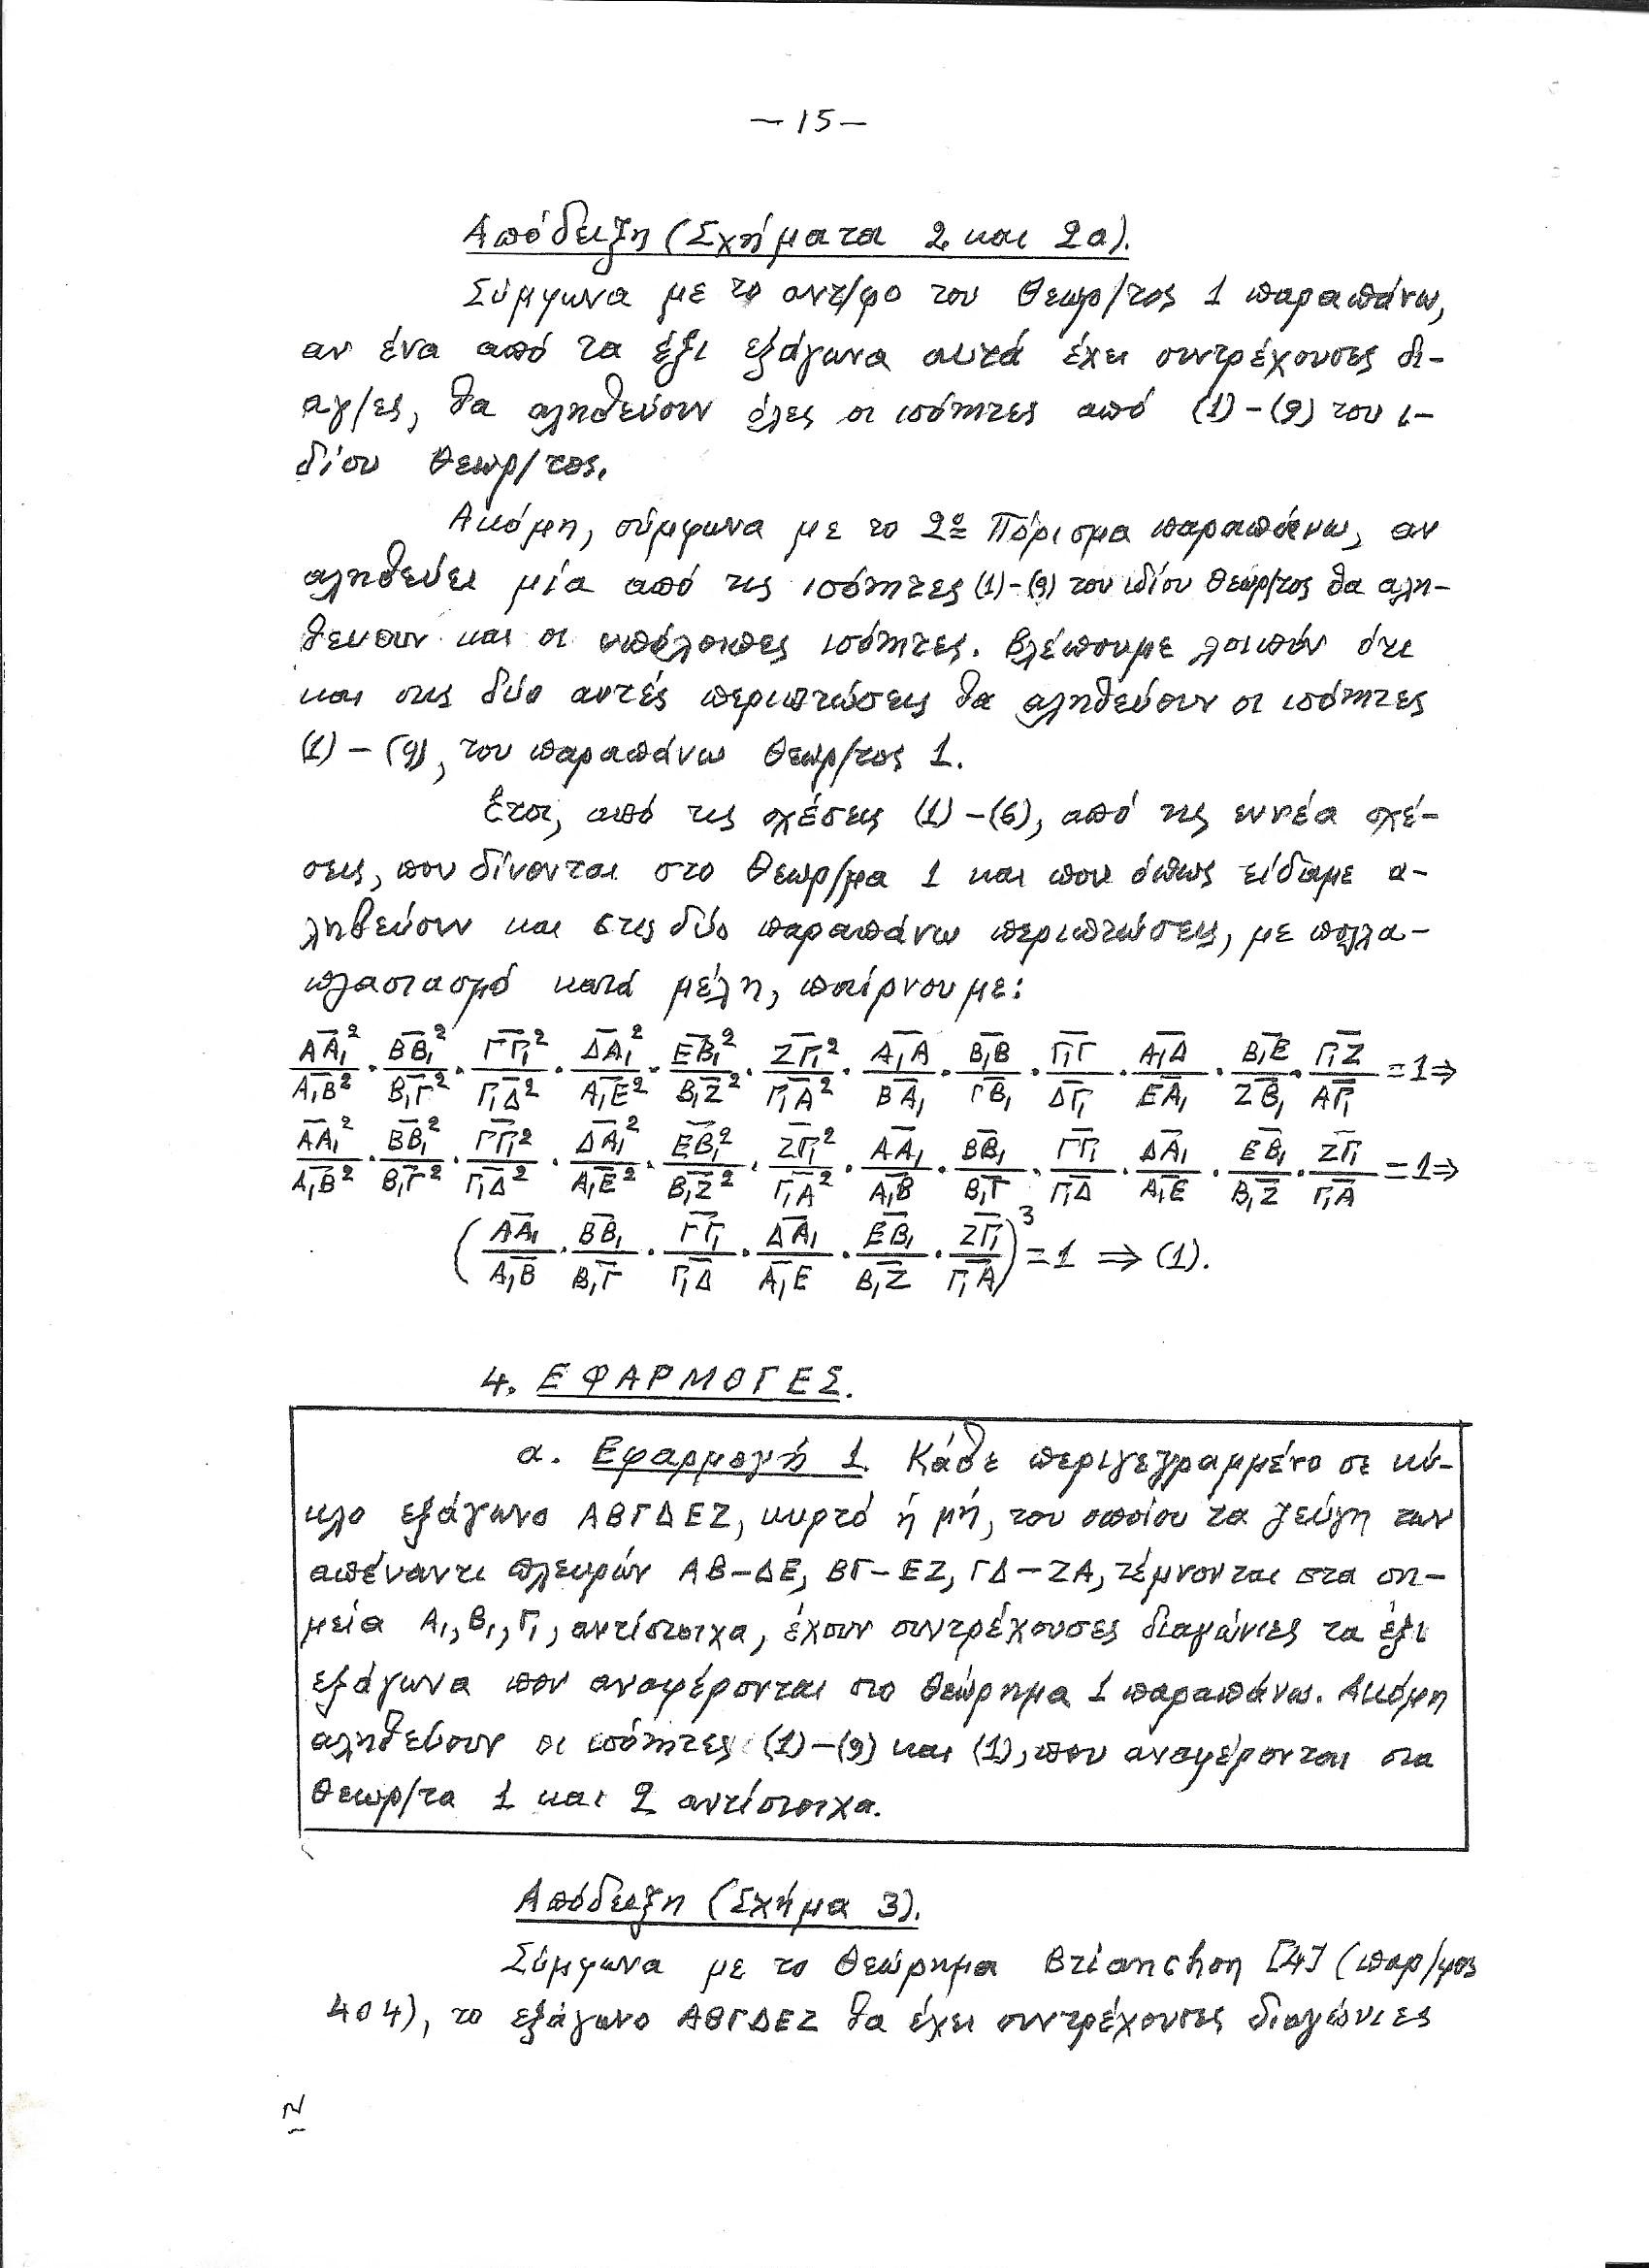 — 15 —
Απόδειξη (Σχήματα 2 και 2α).
Σύμφωνα με το αντ/φο του θεωρ/τος 1 παραπάνω,
αν ένα από τα έξι εξάγωνα αυτά έχει συντρέχουσες δι-
αγ/ες, θα αληθεύουν όλες οι ισότητες από (1)-(9) του ι-
δίου θεωρ/τος.
Ακόμη, σύμφωνα με το 2º Πόρισμα παραπάνω, αν
αληθεύει μία από τις ισότητες (1)-(9) του ιδίου θεωρ/τος θα αλη-
θευουν και οι υπόλοιπες ισότητες. Βλέπουμε λοιπόν ότι
και στις δύο αυτές περιπτώσεις θα αληθεύουν οι ισότητες
(1) – (9), του παραπάνω θεωρ/τος 1.
Έτσι, από τις σχέσεις (1)-(6), από τις εννέα σχέ-
σεις, που δίνονται στο θεωρ/μα 1 και που όπως είδαμε α-
ληθεύουν και στις δύο παραπάνω περιπτώσεις, με πολλα-
πλασιασμό κατά μέλη, παίρνουμε:
$\frac{\overline{AA_1}^2}{\overline{A_1B}^2} \cdot \frac{\overline{BB_1}^2}{\overline{B_1Γ}^2} \cdot \frac{\overline{ΓΓ_1}^2}{\overline{Γ_1Δ}^2} \cdot \frac{\overline{ΔA_1}^2}{\overline{A_1E}^2} \cdot \frac{\overline{EB_1}^2}{\overline{B_1Z}^2} \cdot \frac{\overline{ZΓ_1}^2}{\overline{Γ_1A}^2} \cdot \frac{\overline{A_1A}}{\overline{BA_1}} \cdot \frac{\overline{B_1B}}{\overline{ΓB_1}} \cdot \frac{\overline{Γ_1Γ}}{\overline{ΔΓ_1}} \cdot \frac{\overline{A_1Δ}}{\overline{EA_1}} \cdot \frac{\overline{B_1E}}{\overline{ZB_1}} \cdot \frac{\overline{Γ_1Z}}{\overline{AΓ_1}} = 1 ⇒$
$\frac{\overline{AA_1}^2}{\overline{A_1B}^2} \cdot \frac{\overline{BB_1}^2}{\overline{B_1Γ}^2} \cdot \frac{\overline{ΓΓ_1}^2}{\overline{Γ_1Δ}^2} \cdot \frac{\overline{ΔA_1}^2}{\overline{A_1E}^2} \cdot \frac{\overline{EB_1}^2}{\overline{B_1Z}^2} \cdot \frac{\overline{ZΓ_1}^2}{\overline{Γ_1A}^2} \cdot \frac{\overline{AA_1}}{\overline{A_1B}} \cdot \frac{\overline{BB_1}}{\overline{B_1Γ}} \cdot \frac{\overline{ΓΓ_1}}{\overline{Γ_1Δ}} \cdot \frac{\overline{ΔA_1}}{\overline{A_1E}} \cdot \frac{\overline{EB_1}}{\overline{B_1Z}} \cdot \frac{\overline{ZΓ_1}}{\overline{Γ_1A}} = 1 ⇒$
$\left( \frac{\overline{AA_1}}{\overline{A_1B}} \cdot \frac{\overline{BB_1}}{\overline{B_1Γ}} \cdot \frac{\overline{ΓΓ_1}}{\overline{Γ_1Δ}} \cdot \frac{\overline{ΔA_1}}{\overline{A_1E}} \cdot \frac{\overline{EB_1}}{\overline{B_1Z}} \cdot \frac{\overline{ZΓ_1}}{\overline{Γ_1A}} \right)^3 = 1 ⇒ (1).$
4. ΕΦΑΡΜΟΓΕΣ.
α. Εφαρμογή 1. Κάθε περιγεγραμμένο σε κύ-
κλο εξάγωνο ΑΒΓΔΕΖ, κυρτό ή μή, του οποίου τα ζεύγη των
απέναντι πλευρών ΑΒ–ΔΕ, ΒΓ–ΕΖ, ΓΔ–ΖΑ, τέμνονται στα ση-
μεία Α₁, Β₁, Γ₁, αντίστοιχα, έχουν συντρέχουσες διαγώνιες τα έξι
εξάγωνα που αναφέρονται στο θεώρημα 1 παραπάνω. Ακόμη
αληθεύουν οι ισότητες (1)–(9) και (1), που αναφέρονται στα
θεωρ/τα 1 και 2 αντίστοιχα.
Απόδειξη (Σχήμα 3).
Σύμφωνα με το θεώρημα Brianchon [4] (παρ/φος
404), το εξάγωνο ΑΒΓΔΕΖ θα έχει συντρέχουσες διαγώνιες
Ν